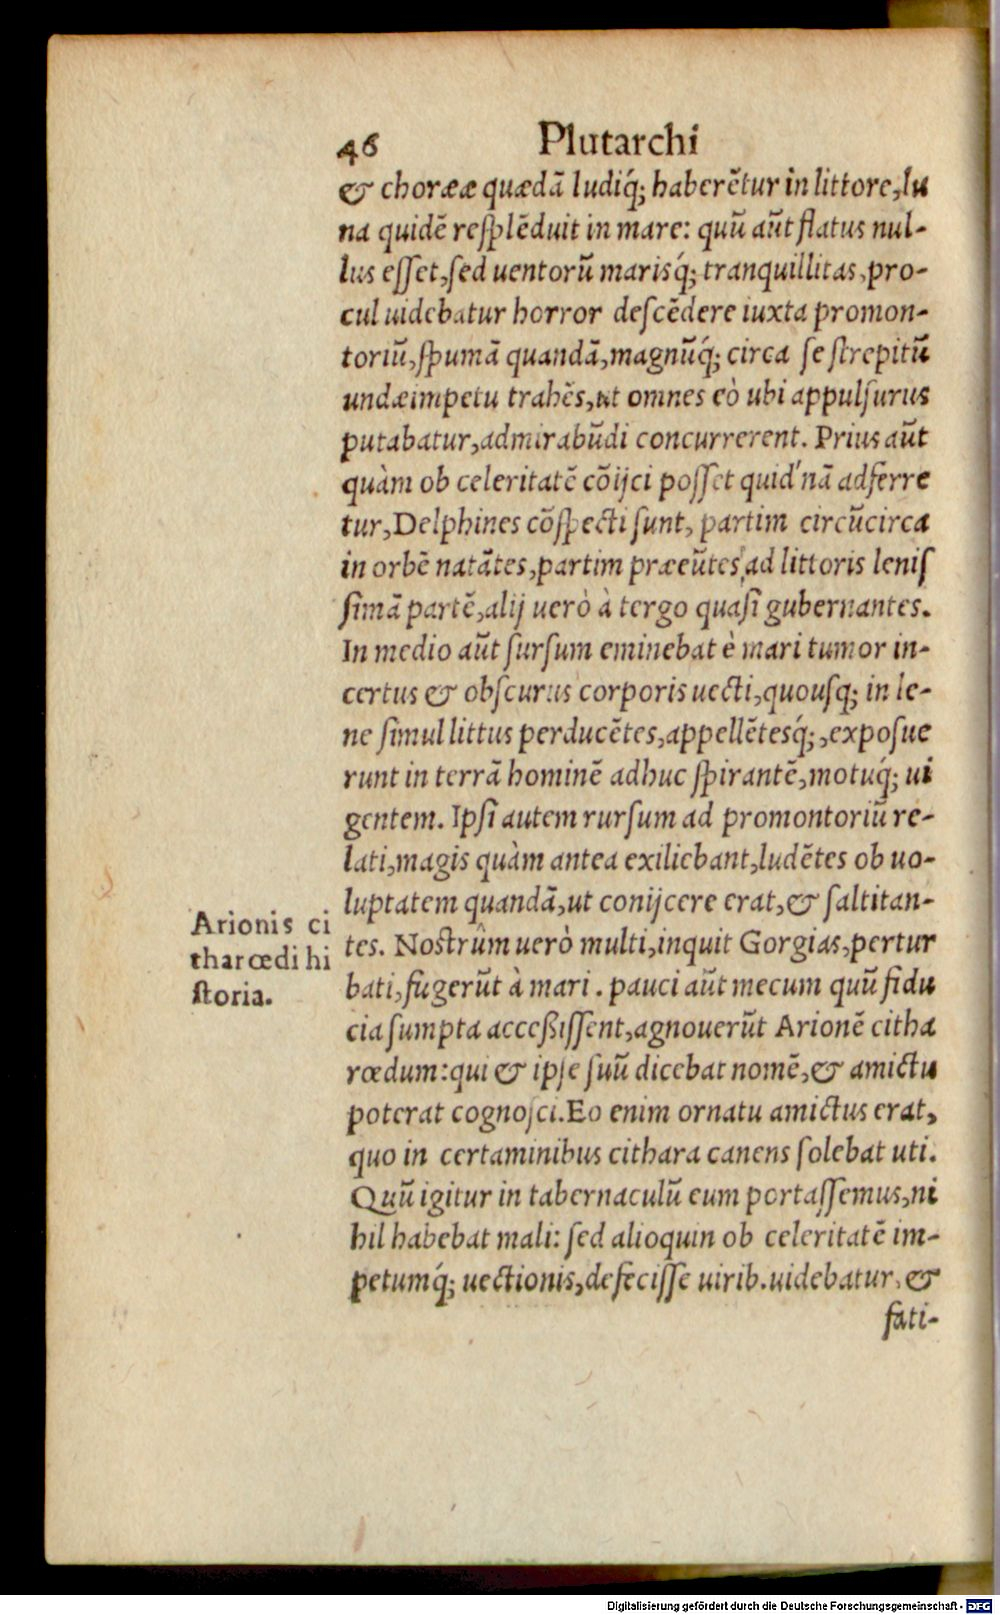 46 Plutarchi
& chorææ quædā ludiq́; haberētur in littore, lu
na quidē resplēduit in mare: quū aūt flatus nul-
lus esset, sed uentorū marisq́; tranquillitas, pro-
cul uidebatur horror descēdere iuxta promon-
toriū, spumā quandā, magnūq́; circa se strepitū
undæ impetu trahēs, ut omnes eò ubi appulsurus
putabatur, admirabūdi concurrerent. Prius aūt
quàm ob celeritatē cōijci posset quid'nā adferre
tur, Delphines cōspecti sunt, partim circūcirca
in orbē natātes, partim præeūtes ad littoris lenis
simā partē, alij uerò à tergo quasi gubernantes.
In medio aūt sursum eminebat è mari tumor in-
certus & obscurus corporis uecti, quousq; in le-
ne simul littus perducētes, appellētesq́;, exposue
runt in terrā hominē adhuc spirantē, motuq́; ui
gentem. Ipsi autem rursum ad promontoriū re-
lati, magis quàm antea exiliebant, ludētes ob uo-
luptatem quandā, ut conijcere erat, & saltitan-
tes. Nostrûm uerò multi, inquit Gorgias, pertur
bati, fugerūt à mari. pauci aūt mecum quū fidu
cia sumpta accessissent, agnouerūt Arionē citha
rœdum: qui & ipse suū dicebat nomē, & amictu
poterat cognosci. Eo enim ornatu amictus erat,
quo in certaminibus cithara canens solebat uti.
Quū igitur in tabernaculū eum portassemus, ni
hil habebat mali: sed alioquin ob celeritatē im-
petumq́; uectionis, defecisse uirib. uidebatur, &
fati-
Arionis ci
tharœdi hi
storia.
Digitalisierung gefördert durch die Deutsche Forschungsgemeinschaft - DFG